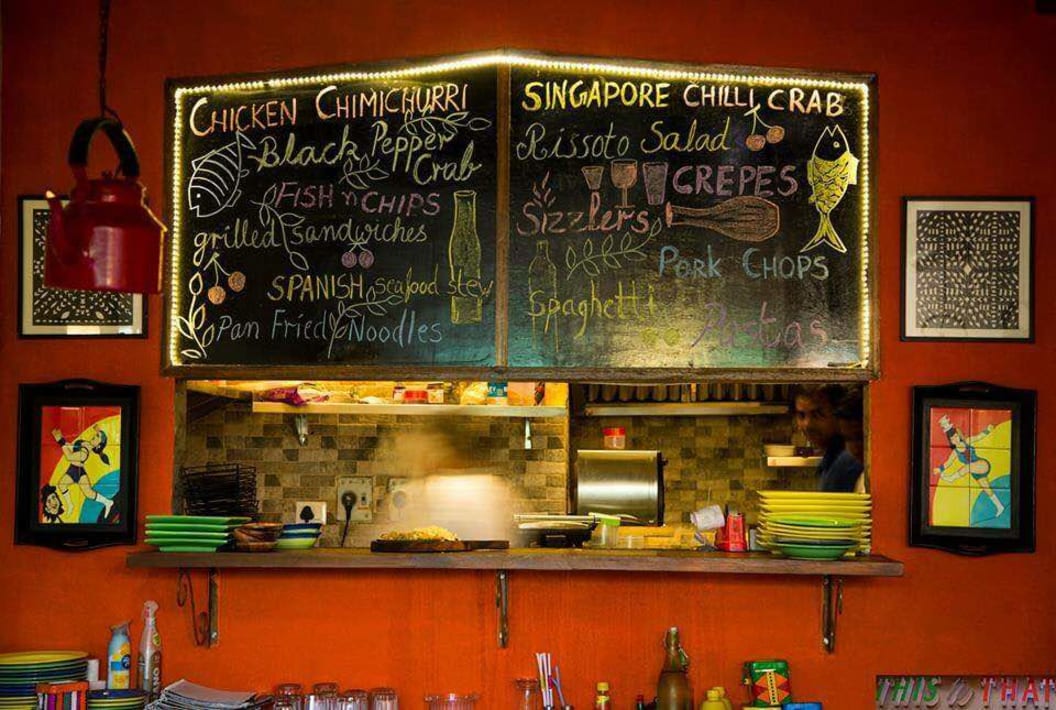 CHICKEN CHIMICHURRI
Black Pepper
Crab
FISH n CHIPS
grilled sandwiches
SPANISH seafood stew
Pan Fried Noodles
SINGAPORE CHILLI CRAB
Rissoto Salad
CREPES
Sizzlers
PORK CHOPS
Spaghetti
Pastas
THIS n THAT